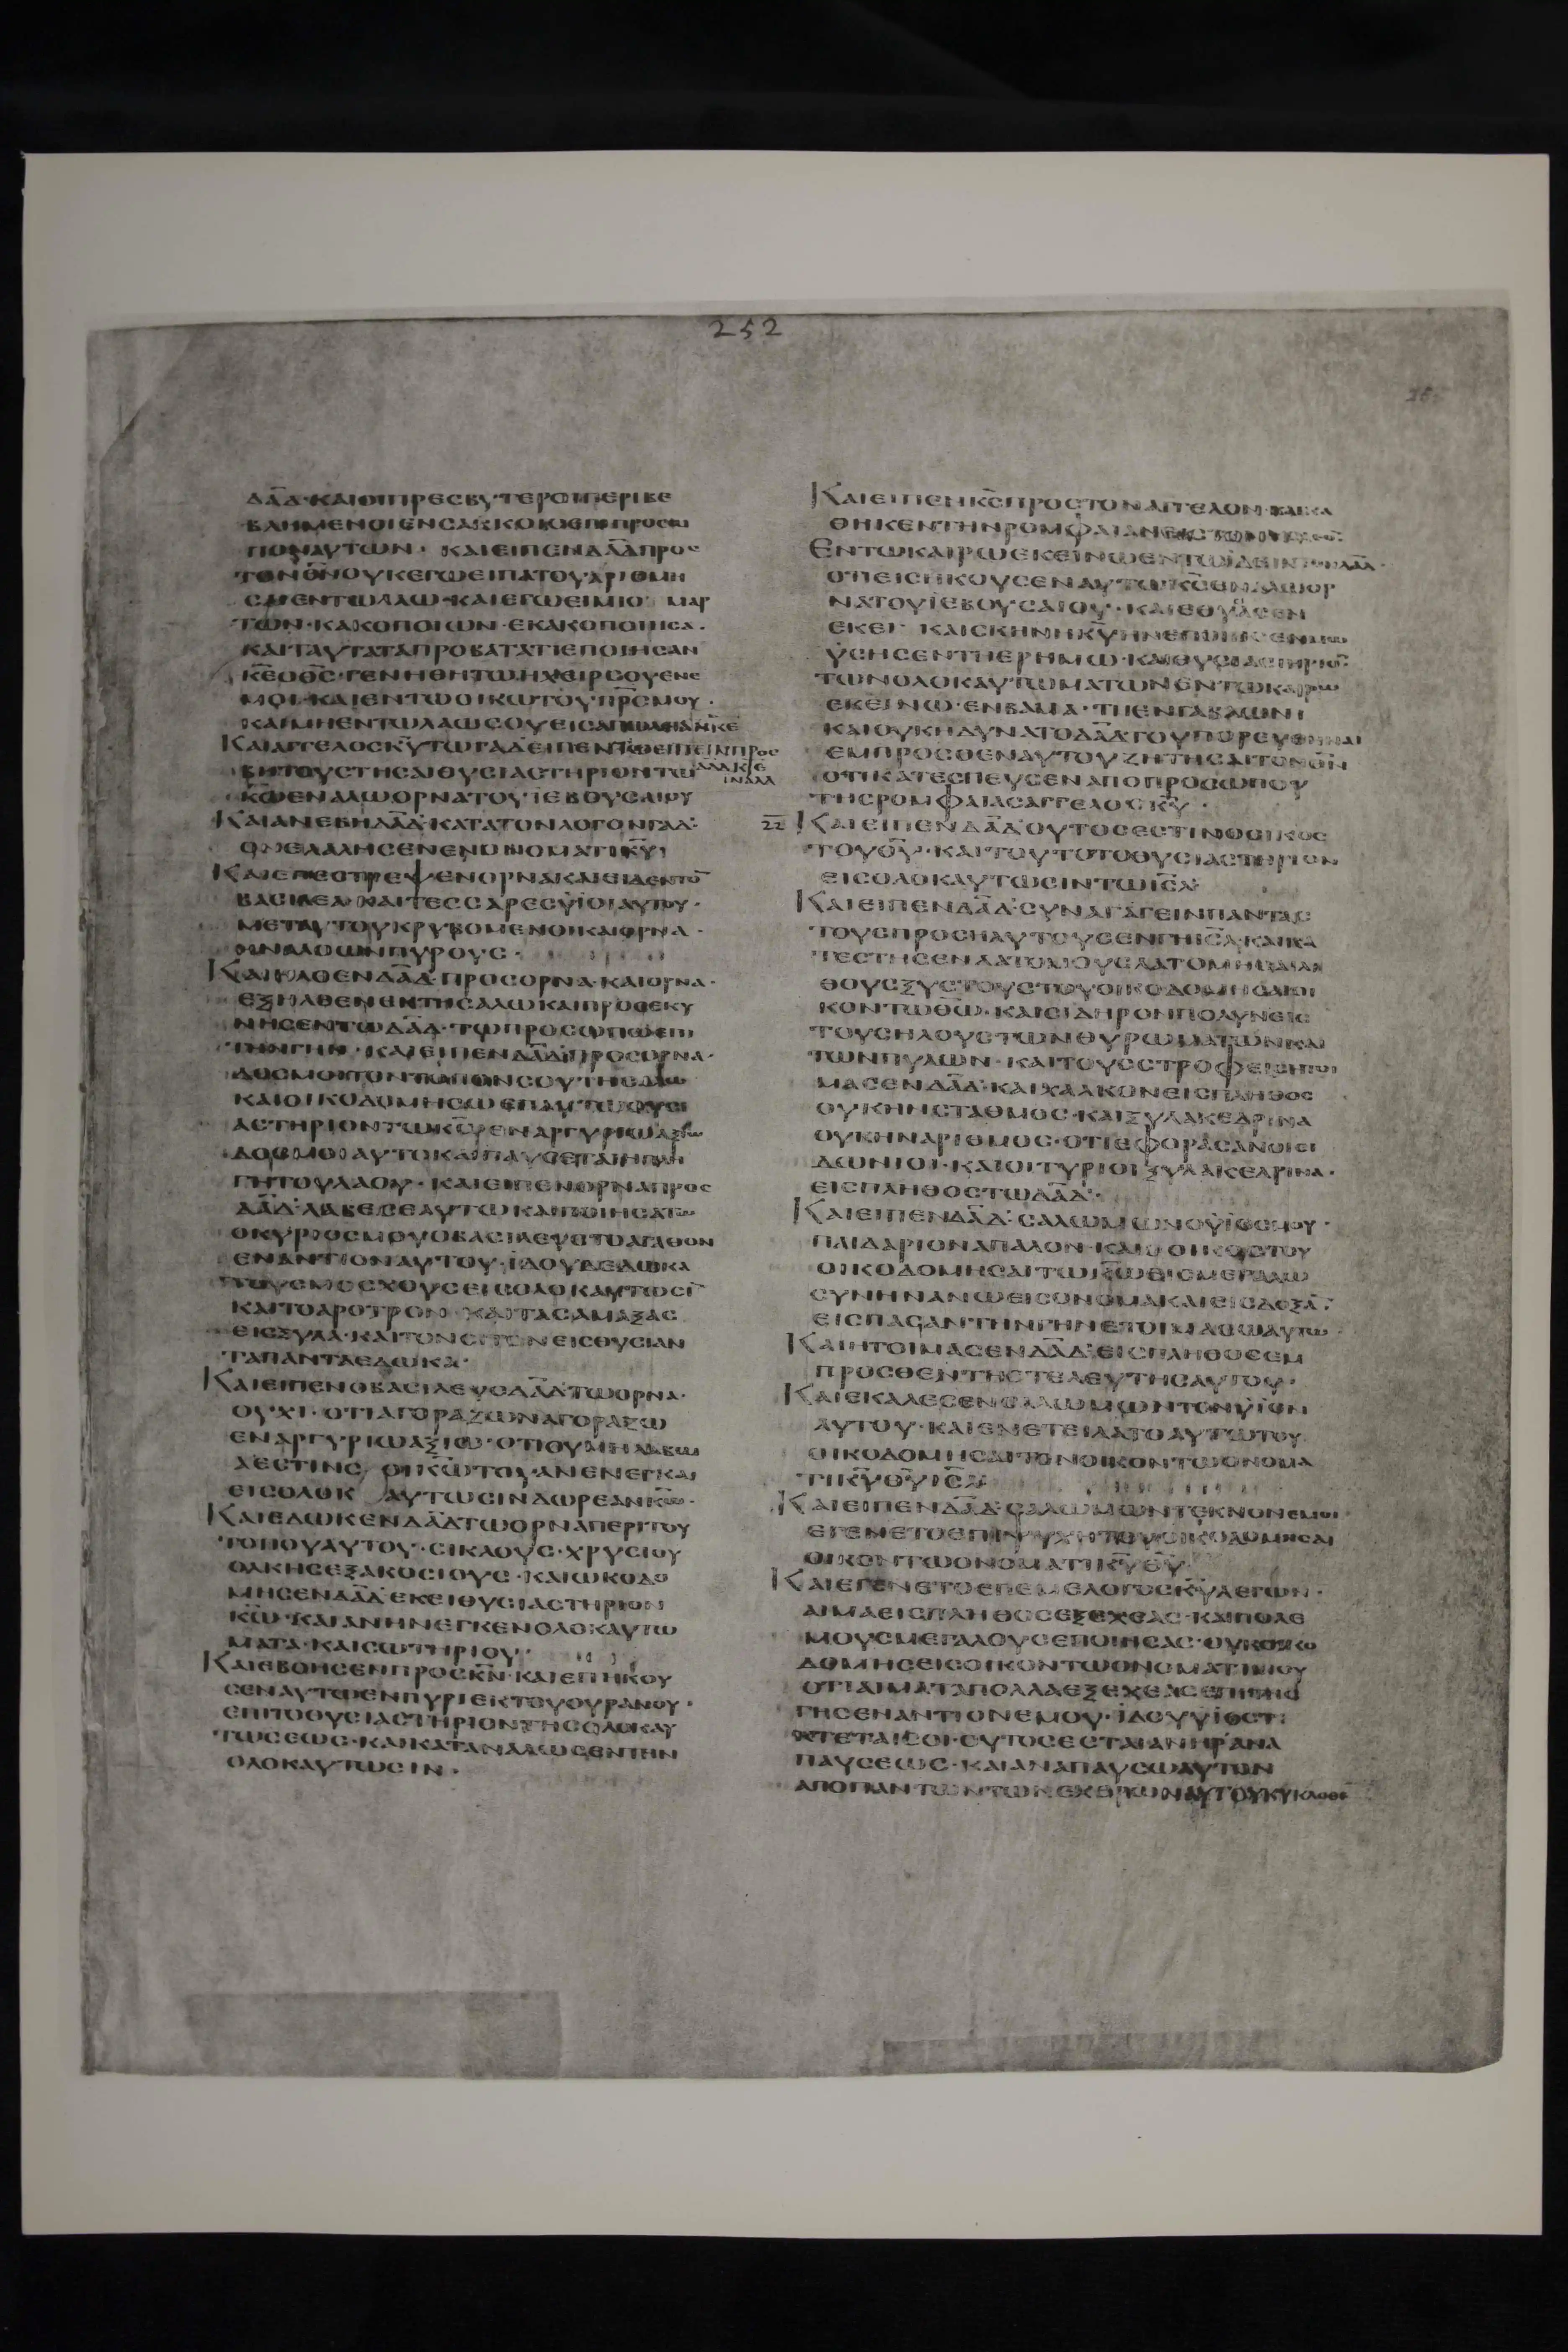 252
ΔΑΔ·ΚΑΙΟΙΠΡΕΣΒΥΤΕΡΟΙΠΕΡΙΒΕ
ΒΛΗΜΕΝΟΙΕΝΣΑΚΚΟΙΣ
ΠΟΝΑΥΤΩΝ· ΚΑΙΕΙΠΕΝΔΑΔΠΡΟΣ
ΤΟΝΘΝΟΥΚΕΓΩΕΙΠΑΤΟΥΑΡΙΘΜΗ
ΕΝΤΩΛΑΩ·ΚΑΙΕΓΩΕΙΜΙΟ ΜΑΡ
ΤΩΝ·ΚΑΚΟΠΟΙΩΝ·ΕΚΑΚΟΠΟΙΗΣΑ·
ΚΑΙΤΑΥΤΑΤΑΠΡΟΒΑΤΑΤΙΕΠΟΙΗΣΑΝ
ΚΕΟΘΣ·ΓΕΝΗΘΗΤΩΗΧΕΙΡΣΟΥΕΝΕ
ΜΟΙ·ΚΑΙΕΝΤΩΟΙΚΩΤΟΥΠΡΣΜΟΥ·
ΚΑΙΜΗΕΝΤΩΛΑΩΣΟΥΕΙΣΑΠΩΛΙΑΝΚΕ
ΚΑΙΑΓΓΕΛΟΣΚΥΤΩΓΑΔΕΙΠΕΝΤΟΥΕΙΠΕΙΝΠΡΟΣ
ΒΗΤΟΥΣΤΗΣΑΙΘΥΣΙΑΣΤΗΡΙΟΝΤΩ
ΚΩΕΝΑΛΩΟΡΝΑΤΟΥΙΕΒΟΥΣΑΙΟΥ
ΚΑΙΑΝΕΒΗΔΑΔ·ΚΑΤΑΤΟΝΛΟΓΟΝΓΑΔ·
ΟΝΕΛΑΛΗΣΕΝΕΝΟΝΟΜΑΤΙΚΥ·
ΚΑΙΕΠΕΣΤΡΕΨΕΝΟΡΝΑΚΑΙΕΙΔΕΝΤΟ
ΒΑΣΙΛΕΑ·ΚΑΙΤΕΣΣΑΡΕΣΥΙΟΙΑΥΤΟΥ·
ΜΕΤΑΥΤΟΥΚΡΥΒΟΜΕΝΟΙΚΑΙΟΡΝΑ·
ΗΝΑΛΟΩΝΠΥΡΟΥΣ·
ΚΑΙΗΛΘΕΝΔΑΔ·ΠΡΟΣΟΡΝΑ·ΚΑΙΟΡΝΑ·
ΕΞΗΛΘΕΝΕΚΤΗΣΑΛΩΚΑΙΠΡΟΣΕΚΥ
ΝΗΣΕΝΤΩΔΑΔ·ΤΩΠΡΟΣΩΠΩΕΠΙ
ΤΗΝΓΗΝ·ΚΑΙΕΙΠΕΝΔΑΔΠΡΟΣΟΡΝΑ·
ΔΟΣΜΟΙΤΟΝΤΟΠΟΝΣΟΥΤΗΣΑΛΩ
ΚΑΙΟΙΚΟΔΟΜΗΣΩΕΠΑΥΤΩΘΥΣΙ
ΑΣΤΗΡΙΟΝΤΩΚΩΕΝΑΡΓΥΡΙΩΑΞΙΩ
ΔΟΣΜΟΙΑΥΤΟΚΑΙΠΑΥΣΕΤΑΙΗΠΛΗ
ΓΗΤΟΥΛΑΟΥ·ΚΑΙΕΙΠΕΝΟΡΝΑΠΡΟΣ
ΔΑΔ·ΛΑΒΕΣΕΑΥΤΩΚΑΙΠΟΙΗΣΑΤΩ
ΟΚΥΡΙΟΣΜΟΥΟΒΑΣΙΛΕΥΣΤΟΑΓΑΘΟΝ
ΕΝΑΝΤΙΟΝΑΥΤΟΥ·ΙΔΟΥΔΕΔΩΚΑ
ΤΟΥΣΜΟΣΧΟΥΣΕΙΣΟΛΟΚΑΥΤΩΣΙ
ΚΑΙΤΟΑΡΟΤΡΟΝ·ΚΑΙΤΑΣΑΜΑΞΑΣ
ΕΙΣΞΥΛΑ·ΚΑΙΤΟΝΣΙΤΟΝΕΙΣΘΥΣΙΑΝ
ΤΑΠΑΝΤΑΕΔΩΚΑ·
ΚΑΙΕΙΠΕΝΟΒΑΣΙΛΕΥΣΔΑΔΤΩΟΡΝΑ·
ΟΥΧΙ·ΟΤΙΑΓΟΡΑΖΩΝΑΓΟΡΑΣΩ
ΕΝΑΡΓΥΡΙΩΑΞΙΩ·ΟΤΙΟΥΜΗΛΑΒΩ
ΑΕΣΤΙΝΣ ΟΙΚΩΤΟΥΑΝΕΝΕΓΚΑΙ
ΕΙΣΟΛΟΚ ΑΥΤΩΣΙΝΔΩΡΕΑΝΚΩ·
ΚΑΙΕΔΩΚΕΝΔΑΔΤΩΟΡΝΑΠΕΡΙΤΟΥ
ΤΟΠΟΥΑΥΤΟΥ·ΣΙΚΛΟΥΣ·ΧΡΥΣΙΟΥ
ΟΛΚΗΣΕΞΑΚΟΣΙΟΥΣ·ΚΑΙΩΚΟΔΟ
ΜΗΣΕΝΔΑΔΕΚΕΙΘΥΣΙΑΣΤΗΡΙΟΝ
ΚΩ·ΚΑΙΑΝΗΝΕΓΚΕΝΟΛΟΚΑΥΤΩ
ΜΑΤΑ·ΚΑΙΣΩΤΗΡΙΟΥ·
ΚΑΙΕΒΟΗΣΕΝΠΡΟΣΚΝ·ΚΑΙΕΠΗΚΟΥ
ΣΕΝΑΥΤΩΕΝΠΥΡΙΕΚΤΟΥΟΥΡΑΝΟΥ·
ΕΠΙΤΟΘΥΣΙΑΣΤΗΡΙΟΝΤΗΣΟΛΟΚΑΥ
ΤΩΣΕΩΣ·ΚΑΙΚΑΤΑΝΑΛΩΣΕΝΤΗΝ
ΟΛΟΚΑΥΤΩΣΙΝ·
ΚΑΙΕΙΠΕΝΚΣΠΡΟΣΤΟΝΑΓΓΕΛΟΝ·ΚΑΙΚΑ
ΘΗΚΕΝΤΗΝΡΟΜΦΑΙΑΝ
ΕΝΤΩΚΑΙΡΩΕΚΕΙΝΩΕΝΤΩΙΔΕΙΝΤΟΝΔΑΔ·
ΟΤΙΕΙΣΗΚΟΥΣΕΝΑΥΤΩΚΣΕΝΑΛΩΟΡ
ΝΑΤΟΥΙΕΒΟΥΣΑΙΟΥ·ΚΑΙΕΘΥΣΑΣΕΝ
ΕΚΕΙ ΚΑΙΣΚΗΝΗΚΥΗΝΕΠΟΙΗΣΕΝΜΩ
ΥΣΗΣΕΝΤΗΕΡΗΜΩ·ΚΑΙΘΥΣΙΑΣΤΗΡΙΟ
ΤΩΝΟΛΟΚΑΥΤΩΜΑΤΩΝΕΝΤΩΚΑΙΡΩ
ΕΚΕΙΝΩ·ΕΝΒΑΜΑ·ΤΗΕΝΓΑΒΑΩΝΙ
ΚΑΙΟΥΚΗΔΥΝΑΤΟΔΑΔΤΟΥΠΟΡΕΥΘΗΝΑΙ
ΕΜΠΡΟΣΘΕΝΑΥΤΟΥΖΗΤΗΣΑΙΤΟΝΘΝ
ΟΤΙΚΑΤΕΣΠΕΥΣΕΝΑΠΟΠΡΟΣΩΠΟΥ
ΤΗΣΡΟΜΦΑΙΑΣΑΓΓΕΛΟΥΚΥ·
22 ΚΑΙΕΙΠΕΝΔΑΔΟΥΤΟΣΕΣΤΙΝΟΟΙΚΟΣ
ΤΟΥΘΥ·ΚΑΙΤΟΥΤΟΤΟΘΥΣΙΑΣΤΗΡΙΟΝ
ΕΙΣΟΛΟΚΑΥΤΩΣΙΝΤΩΙΣΛ·
ΚΑΙΕΙΠΕΝΔΑΔ·ΣΥΝΑΓΑΓΕΙΝΠΑΝΤΑΣ
ΤΟΥΣΠΡΟΣΗΛΥΤΟΥΣΕΝΓΗΙΣΛ·ΚΑΙΚΑ
ΤΕΣΤΗΣΕΝΛΑΤΟΜΟΥΣΛΑΤΟΜΗΣΑΙΛΙ
ΘΟΥΣΞΥΣΤΟΥΣΤΟΥΟΙΚΟΔΟΜΗΣΑΙΟΙ
ΚΟΝΤΩΘΩ·ΚΑΙΣΙΔΗΡΟΝΠΟΛΥΝΕΙΣ
ΤΟΥΣΗΛΟΥΣΤΩΝΘΥΡΩΜΑΤΩΝΚΑΙ
ΤΩΝΠΥΛΩΝ·ΚΑΙΤΟΥΣΣΤΡΟΦΕΙΣΗΤΟΙ
ΜΑΣΕΝΔΑΔ·ΚΑΙΧΑΛΚΟΝΕΙΣΠΛΗΘΟΣ
ΟΥΚΗΝΣΤΑΘΜΟΣ·ΚΑΙΞΥΛΑΚΕΔΡΙΝΑ
ΟΥΚΗΝΑΡΙΘΜΟΣ·ΟΤΙΕΦΟΡΑΣΑΝΟΙΣΙ
ΔΩΝΙΟΙ·ΚΑΙΟΙΤΥΡΙΟΙΞΥΛΑΚΕΔΡΙΝΑ·
ΕΙΣΠΛΗΘΟΣΤΩΔΑΔ·
ΚΑΙΕΙΠΕΝΔΑΔ·ΣΑΛΩΜΩΝΟΥΙΟΣΜΟΥ·
ΠΑΙΔΑΡΙΟΝΑΠΑΛΟΝ·ΚΑΙΟΟΙΚΟΣΤΟΥ
ΟΙΚΟΔΟΜΗΣΑΙΤΩΚΩΕΙΣΜΕΓΑΛΩ
ΣΥΝΗΝΑΝΩΕΙΣΟΝΟΜΑΚΑΙΕΙΣΔΟΞΑ·
ΕΙΣΠΑΣΑΝΤΗΝΓΗΝΕΤΟΙΜΑΣΩΑΥΤΩ·
ΚΑΙΗΤΟΙΜΑΣΕΝΔΑΔ·ΕΙΣΠΛΗΘΟΣΕΜ
ΠΡΟΣΘΕΝΤΗΣΤΕΛΕΥΤΗΣΑΥΤΟΥ·
ΚΑΙΕΚΑΛΕΣΕΝΣΑΛΩΜΩΝΤΟΝΥΙΟΝ
ΑΥΤΟΥ·ΚΑΙΕΝΕΤΕΙΛΑΤΟΑΥΤΩΤΟΥ
ΟΙΚΟΔΟΜΗΣΑΙΤΟΝΟΙΚΟΝΤΩΟΝΟΜΑ
ΤΙΚΥΘΥΙΣΛ
ΚΑΙΕΙΠΕΝΔΑΔ·ΣΑΛΩΜΩΝΤΕΚΝΟΝΕΜΟΙ·
ΕΓΕΝΕΤΟΕΠΙΨΥΧΗΤΟΥΟΙΚΟΔΟΜΗΣΑΙ
ΟΙΚΟΝΤΩΟΝΟΜΑΤΙΚΥΘΥ·
ΚΑΙΕΓΕΝΕΤΟΕΠΕΜΕΛΟΓΟΣΚΥΛΕΓΩΝ·
ΑΙΜΑΕΙΣΠΛΗΘΟΣΕΞΕΧΕΑΣ·ΚΑΙΠΟΛΕ
ΜΟΥΣΜΕΓΑΛΟΥΣΕΠΟΙΗΣΑΣ·ΟΥΚΟΙΚΟ
ΔΟΜΗΣΕΙΣΟΙΚΟΝΤΩΟΝΟΜΑΤΙΜΟΥ
ΟΤΙΑΙΜΑΤΑΠΟΛΛΑΕΞΕΧΕΑΣΕΠΙΤΗΣ
ΓΗΣΕΝΑΝΤΙΟΝΕΜΟΥ·ΙΔΟΥΥΙΟΣΤΙ
ΚΤΕΤΑΙΣΟΙ·ΟΥΤΟΣΕΣΤΑΙΑΝΗΡΑΝΑ
ΠΑΥΣΕΩΣ·ΚΑΙΑΝΑΠΑΥΣΩΑΥΤΟΝ
ΑΠΟΠΑΝΤΩΝΤΩΝΕΧΘΡΩΝΑΥΤΟΥΚΥΚΛΟΘΕ